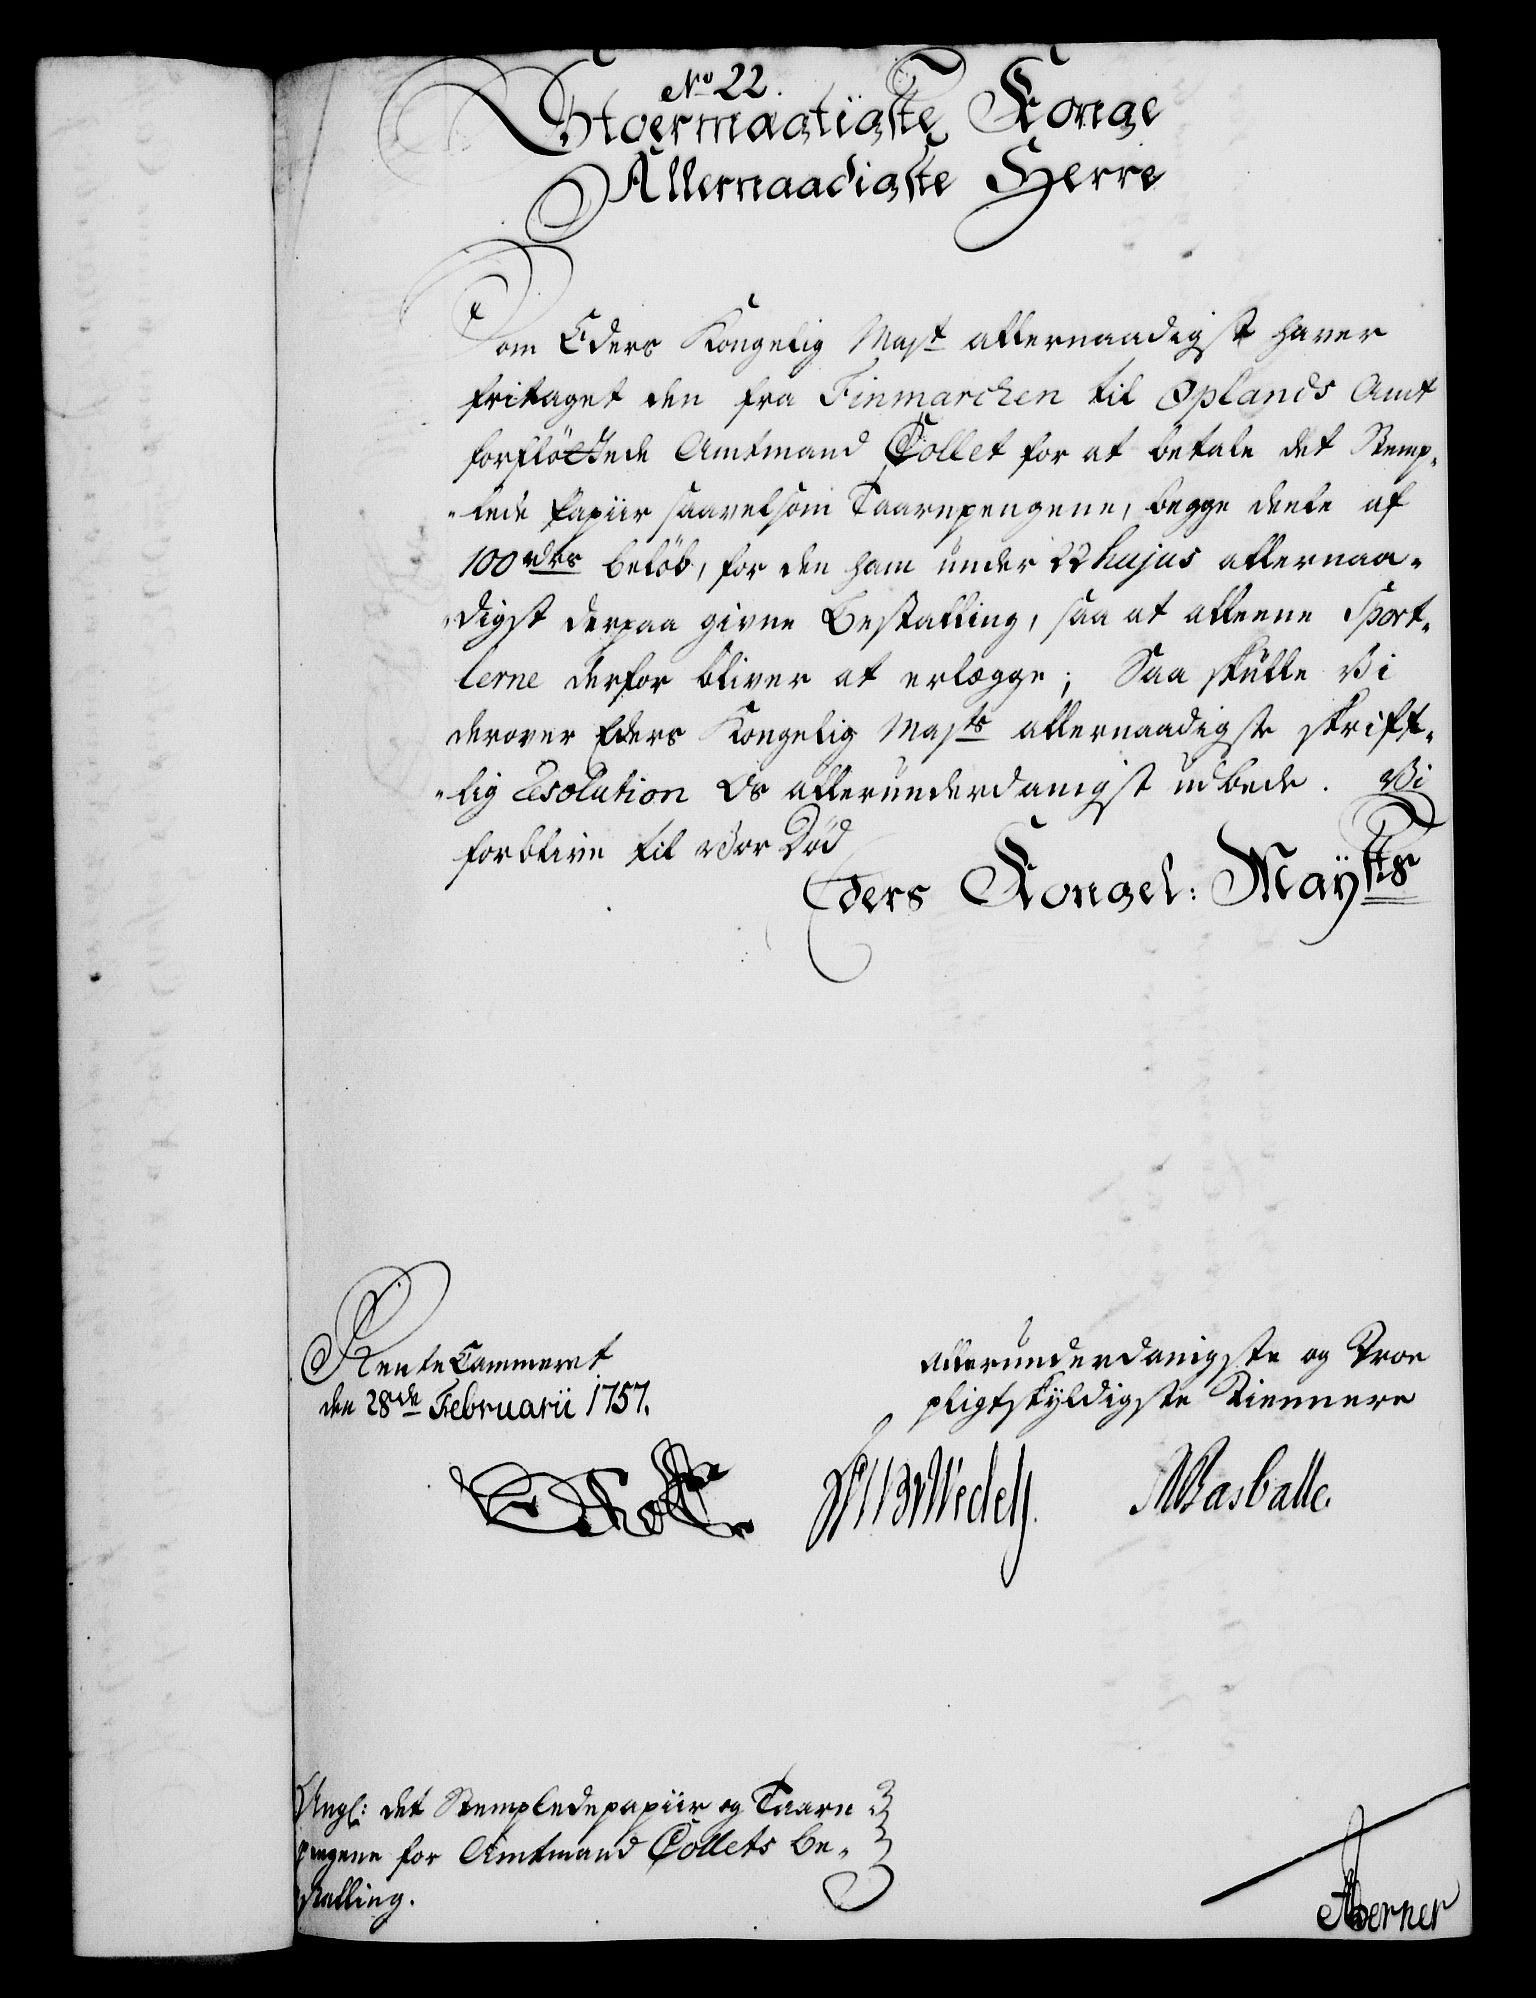 No 22.
Stoermægtigste Konge
Allernaadigste Herre
Som Eders Kongelig Mayt allernaadigst haver
fritaget den fra Finmarchen til Oplands Amt
forflöttede Amtmand Collet for at betale det Stemp-
-lede Papiir saavelsom Taarnpengene, begge deele af
100 rdrs beløb, for den ham under 22 hujus allernaa-
digst derpaa givne Bestalling, saa at alleene Sport-
lerne derfor bliver at erlægge; Saa skulle Vi
derover Eders Kongelig Mayts allernaadigste skrifft-
-lig Resolution Os allerunderdanigst udbede. Vi
forblive til Vor Død
Eders Kongel: Mayts
Rente Cammeret
den 28de Februarii 1757.
Allerunderdanigste og Troe
pligtskyldigste Tiennere
Wedell.
Rasballe.
Angl: det Stempledepapiir og Taarn
pengene for Amtmand Collets Be-
stalling.
Berner